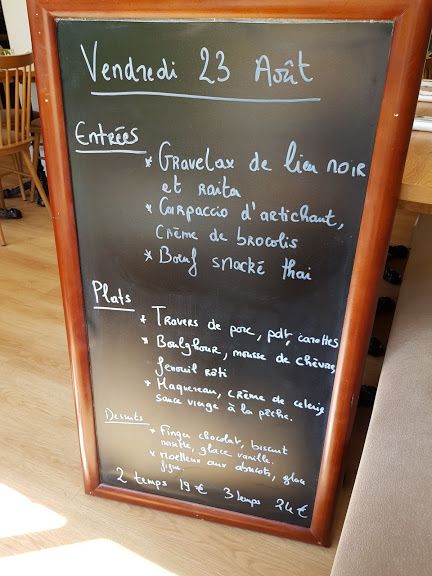 Vendredi 23 Août
Entrées
* Gravelax de lieu noir
et raita
* Carpaccio d'artichaut,
crème de brocolis
* Boeuf snacké thai
Plats
* Travers de porc, pdt, carottes
* Boulghour, mousse de chèvre,
fenouil rôti
* Maquereau, crème de celeri,
sauce vierge à la pêche.
Desserts
* Finger chocolat, biscuit
noisette, glace vanille.
* Moelleux aux abricots, glace
figue.
2 temps 19€ 3 temps 24€